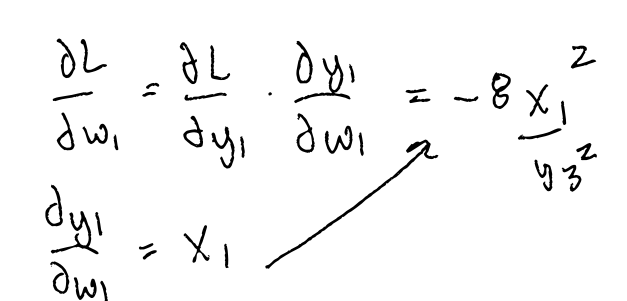 ∂L/∂w₁ = ∂L/∂y₁ · ∂y₁/∂w₁ = -8 x₁²/y₃²
∂y₁/∂w₁ = x₁